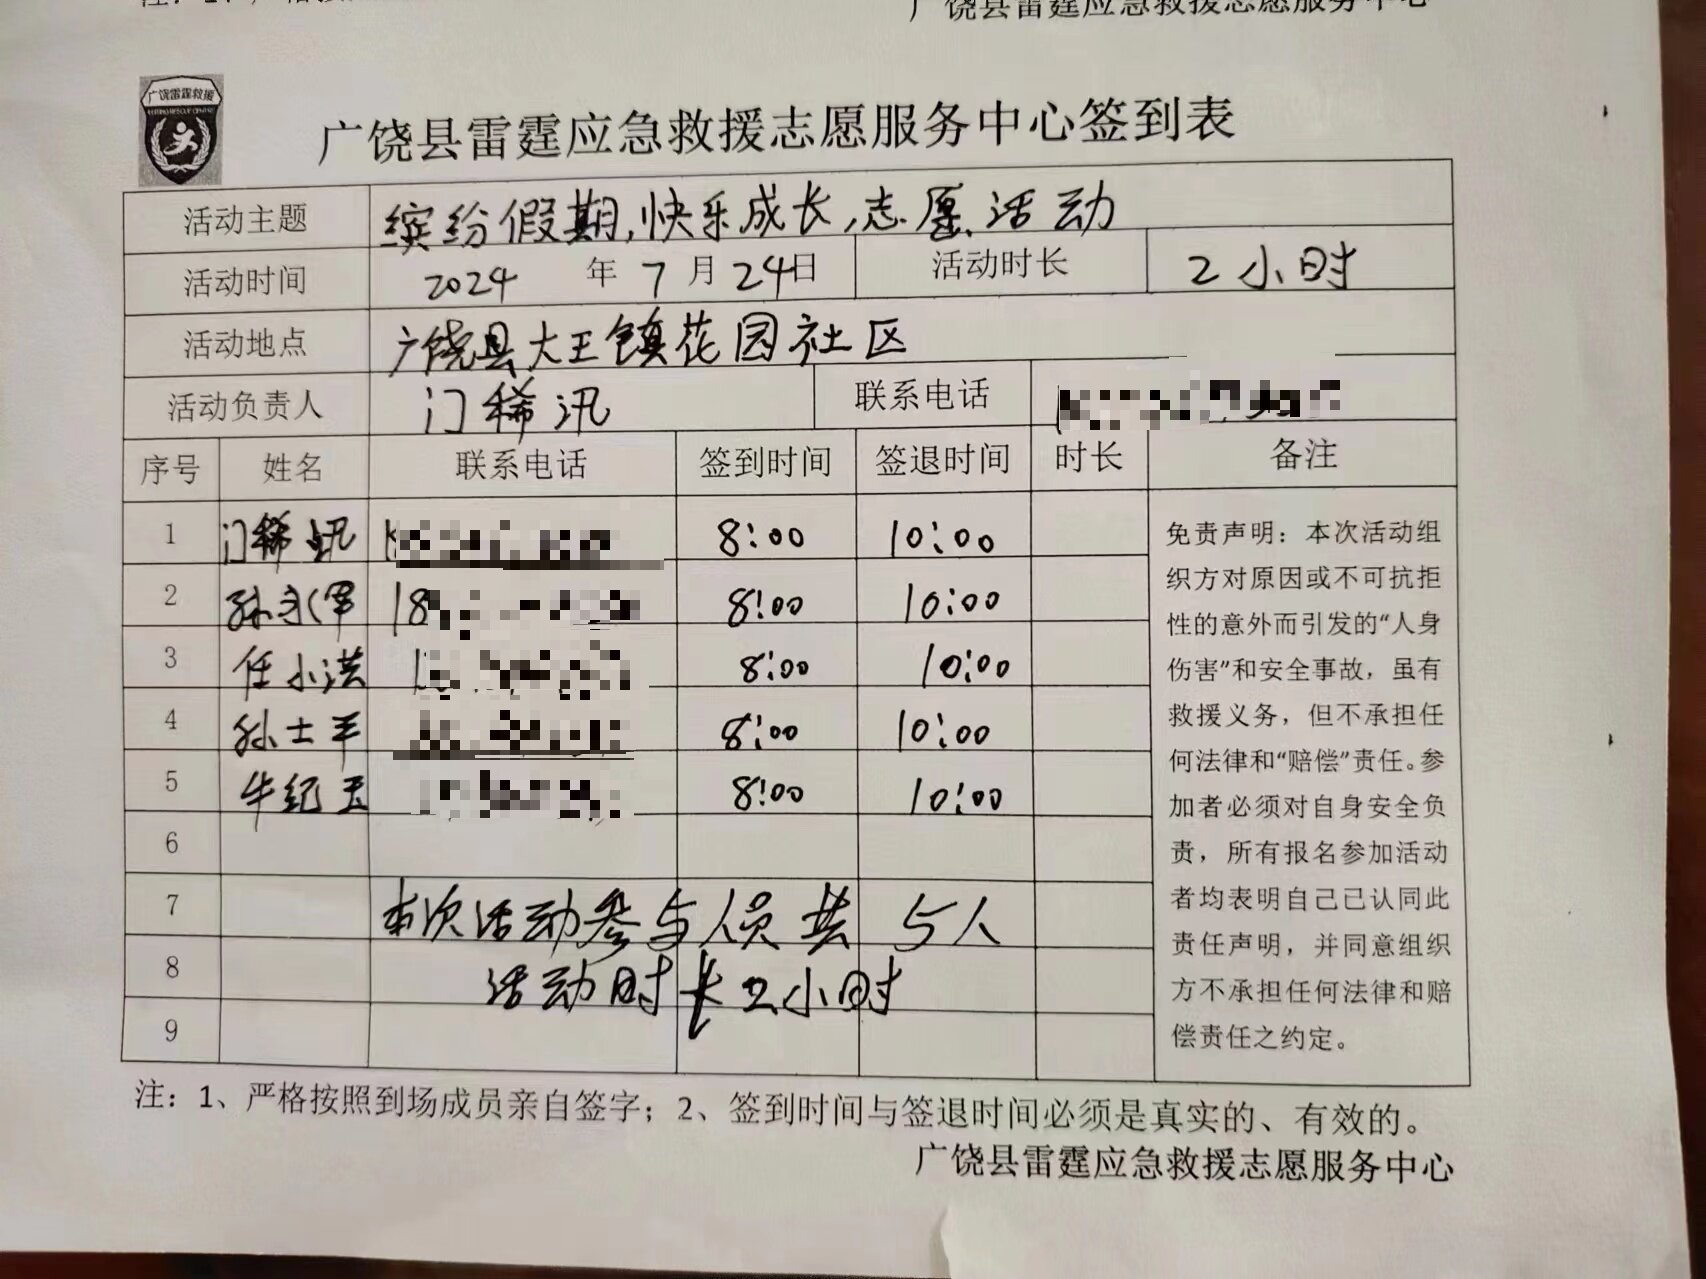 广饶县雷霆应急救援志愿服务中心
广饶雷霆救援
广饶县雷霆应急救援志愿服务中心签到表
活动主题 缤纷假期,快乐成长,志愿活动
活动时间 2024 年 7 月 24日 活动时长 2小时
活动地点 广饶县大王镇花园社区
活动负责人 门稀汛 联系电话
序号 姓名 联系电话 签到时间 签退时间 时长 备注
1 门稀汛 8:00 10:00
2 18 8:00 10:00
3 任小洪 8:00 10:00
4 孙士羊 8:00 10:00
5 牛纪玉 8:00 10:00
6
7 本次活动参与人员共 5人
8 活动时长2小时
9
免责声明：本次活动组
织方对原因或不可抗拒
性的意外而引发的“人身
伤害”和安全事故，虽有
救援义务，但不承担任
何法律和“赔偿”责任。参
加者必须对自身安全负
责，所有报名参加活动
者均表明自己已认同此
责任声明，并同意组织
方不承担任何法律和赔
偿责任之约定。
注：1、严格按照到场成员亲自签字；2、签到时间与签退时间必须是真实的、有效的。
广饶县雷霆应急救援志愿服务中心